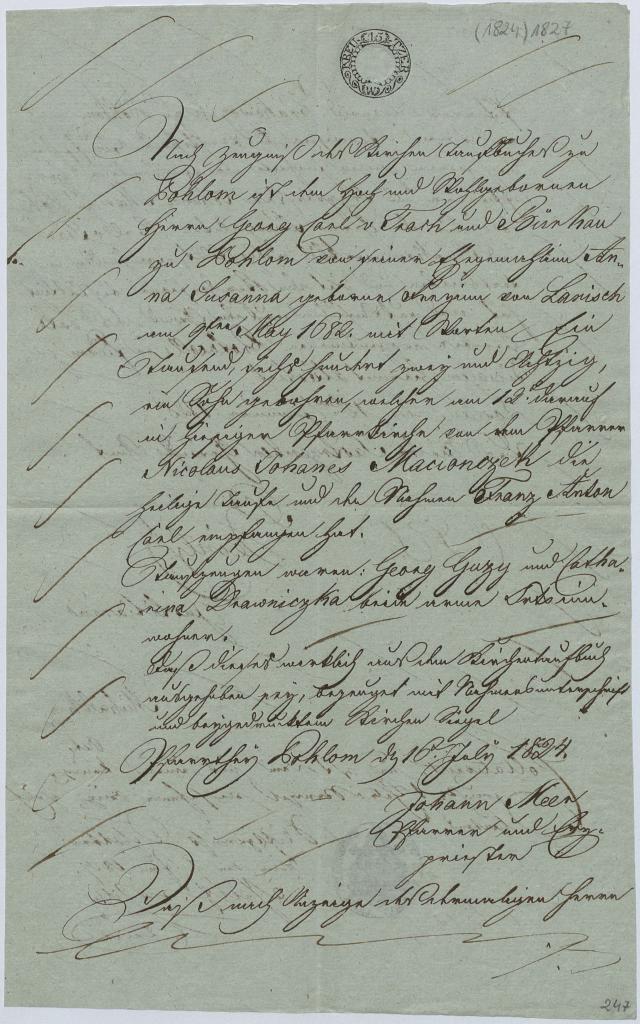 (1824) 1827
15 KREUTZER
Nach Zeugniß des Kirchen Taufbuches zu
Pohlom ist dem Hoch und Wohlgebornen
Herrn Georg Carl v. Trach und Birkau
zu Pohlom von seiner Ehegemahlin An-
na Susanna geborne Freyinn von Lanisch
am 9ten May 1682. mit Worten Ein
Tausend, sechs hundert zwey und Achtzig,
ein Sohn gebohren, welcher am 12. darauf
in hiesiger Pfarrkirche von dem Pfarrer
Nicolaus Johanes Macionczek die
heilige Taufe und den Nahmen Franz Anton
Carl empfangen hat.
Taufzeugen waren: Georg Gazy und Catha-
rina Drawniczka beide arme Ortseinn-
wohner.
Daß dieses wirklich aus dem Kirchentaufbuch
ausgehoben sey, bezeuget mit Nahmensunterschrift
und beygedrucktem Kirchen Siegel
Pfarrthey Pohlom d. 16t July 1824.
Johann Meer
Pfarrer und Erz-
priester
Daß nach Anzeige des ehemaligen Herrn
247